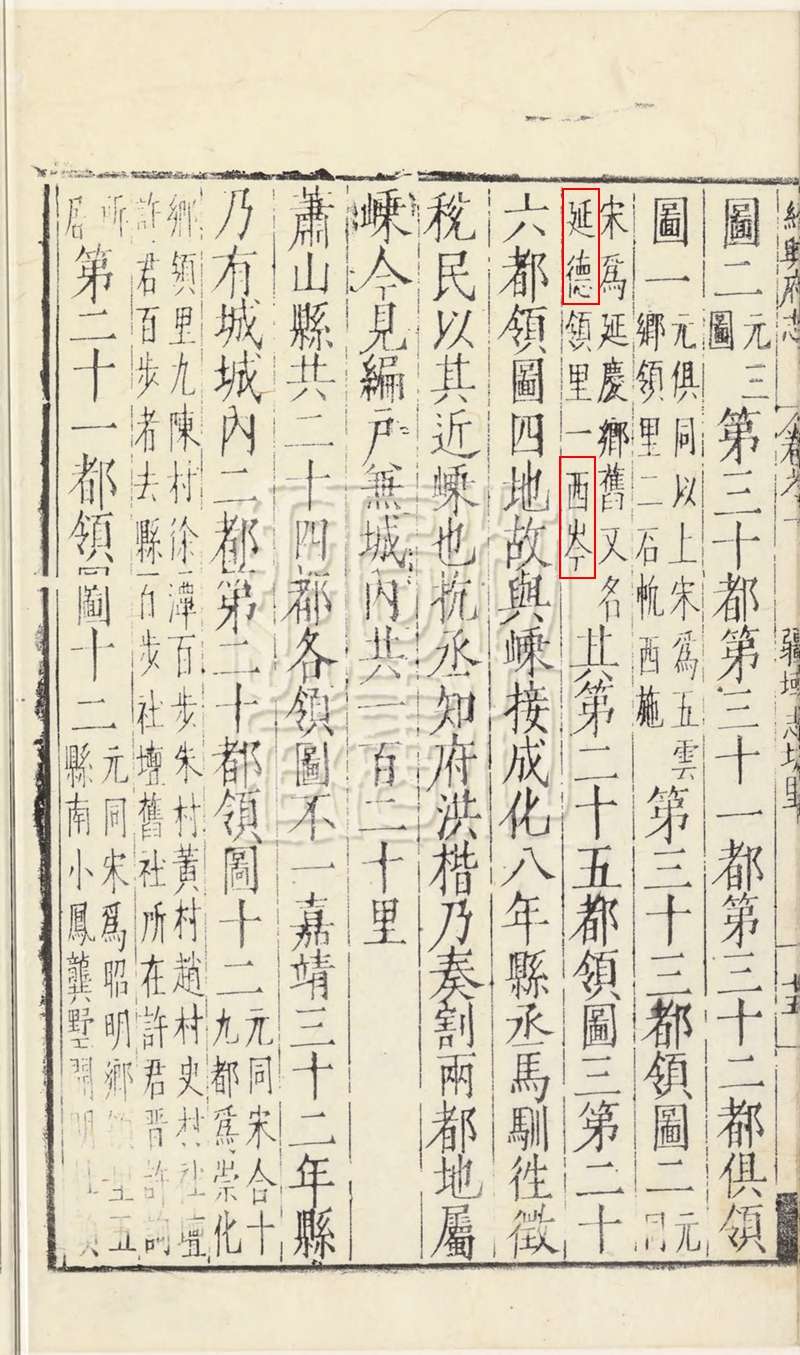 紹興府志 卷之一 疆域志 坊里 十五
圖二元三圖第三十都第三十一都第三十二都俱領
圖一元俱同以上宋爲五雲鄉領里二石帆西施第三十三都領圖二元同
宋爲延慶鄉舊又名延德領里一西岑其第二十五都領圖三第二十
六都領圖四地故與嵊接成化八年縣丞馬馴徃徵
稅民以其近嵊也抗丞知府洪楷乃奏割兩都地屬
嵊今見編戶無城內共一百二十里
蕭山縣共二十四都各領圖不一嘉靖三十二年縣
乃有城城內二都第二十都領圖十二元同宋合十九都爲崇化
鄉領里九陳村徐潭百步朱村黃村趙村史村社壇許君百步者去縣百步社壇舊社所在許君晋許詢
所居第二十一都領圖十二元同宋爲昭明鄉領里五縣南小鳳龔墅開明